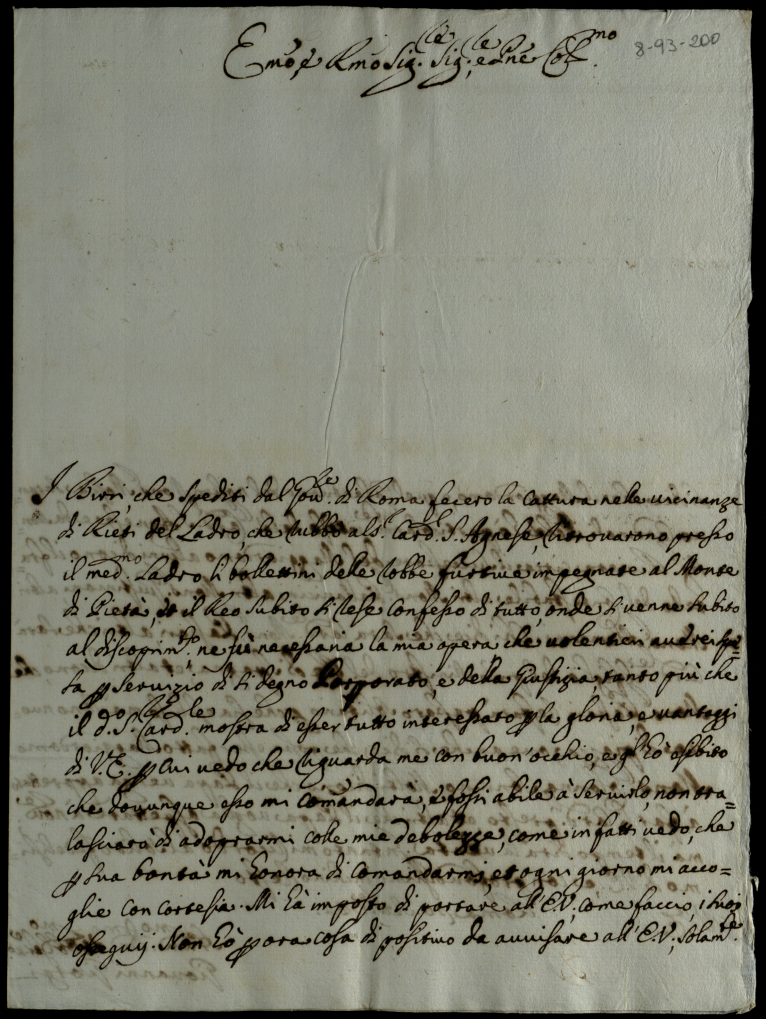 8-93-200
Emo, e Rmo Sig.re Sig.re, e Pne Col.mo
I Birri, che spediti dal Gov.re di Roma fecero la cattura nelle vicinanze
di Rieti del Ladro, che rubbò al S.r Card.l S. Agnese, ritrovarono presso
il med.mo Ladro li bollettini delle robbe furtive impegnate al Monte
di Pietà, et il Reo subito si rese confesso di tutto, onde si venne subito
al discoprim.to, ne fù necessaria la mia opera che volentieri avrei spe=
sa p servizio di si degno Porporato, e della Giustizia, tanto più che
il d.o S.r Card.le mostra di esser tutto interessato p la gloria, e vantaggi
di V.E. p cui vedo che riguarda me con buon'occhio, e gl'hò esibito
che dovunque esso mi comandarà, e fossi abile à servirlo, non tra=
lasciarò di adoprarmi colle mie debolezze, come in fatti vedo, che
p sua bontà mi honora di comandarmi, et ogni giorno mi acco=
glie con cortesia. Mi hà imposto di portare all'E.V., come faccio, i suoi
ossequij. Non hò p ora cosa di positivo da avvisare all'E.V., solam.te